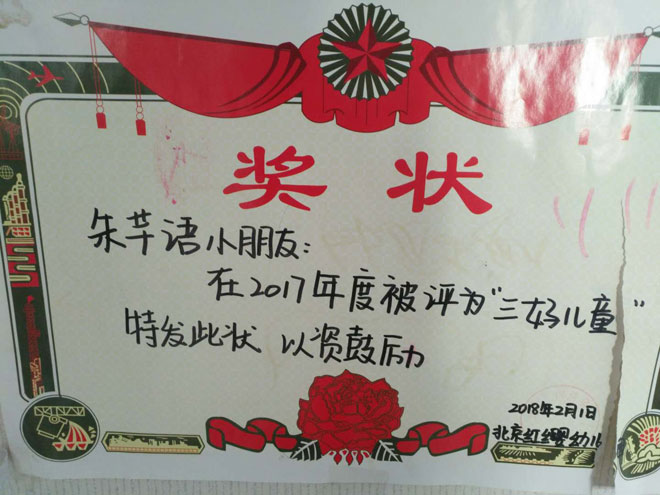 奖状
朱芊语小朋友：
在2017年度被评为“三好儿童”
特发此状 以资鼓励
2018年2月1日
北京红缨幼儿